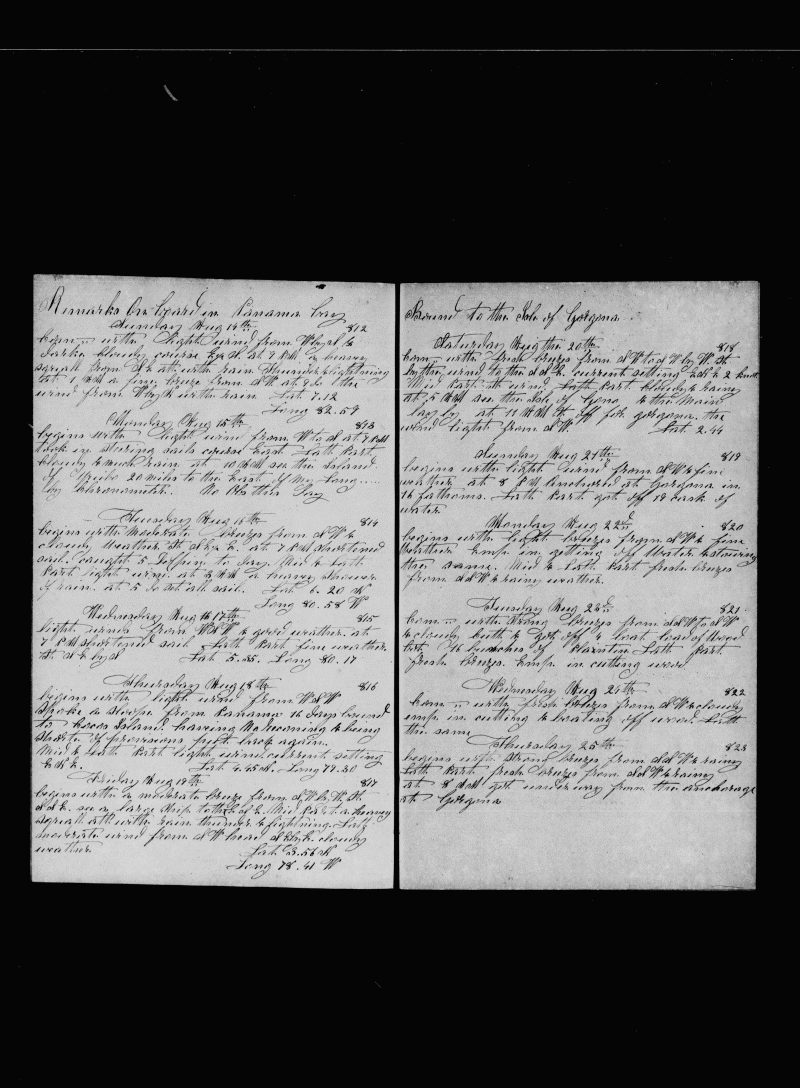 Remarks On board in Panama bay
Sunday Aug 14th 812
com .. with light wind from W by S &
dark cloudy course by S at 9 PM a heavy
squall from with rain thunder & lightning
at 1 AM a fine breeze from S W at 9 do the
wind from W by S with rain Lat 7.12
Long 82.59
Monday Aug 15th 813
begins with light wind from W to S at 7 PM
took in steering sails course East Lath Part
cloudy & much rain at 10 AM see the Island
of 20 miles to the East of My Long ....
by chronometer. No Obs this Day
Tuesday Aug 16th 814
begins with moderate breezes from S W &
cloudy weather at 7 PM shortened
sail caught 5 Mid & Lath
Part light wind at 3 AM a heavy shower
of rain. at 5 do set all sail. Lat 6.20 N
Long 80.58 W
Wednesday Aug 17th 815
light winds from W S W & good weather at
7 PM shortened sail Lath Part fine weather
S E by S Lat 5.35. Long 80.17
Thursday Aug 18th 816
begins with light wind from W S W
Spoke a sloop from Panama 16 days bound
to Cocos Island having No & being
Short of provisions put back again.
Mid & Lath Part light wind current setting
E N E. Lat 4.45 N. Long 79.30
Friday Aug 19th 817
begins with a moderate breeze from S W by W
S S E. see a large ship to the S E. Mid Part a heavy
squall with rain thunder & lightning. Lath
moderate wind from S W head S E by E cloudy
weather
Lat 3.56 N
Long 78.41 W
Bound to the Isle of Gorgona
Saturday Aug the 20th 818
com .. with fresh breeze from S W to S W by W
by the wind to the S S E current setting 2 knots
Mid Part wind Lath Part cloudy & rainy
at 5 AM see the Isle of Gona & the Main
lay by at 11 AM off for gorgona. the
wind light from S W Lat 2.44
Sunday Aug 21th 819
begins with light wind from S W & fine
weather at 8 PM Anchored at Gorgona in
16 fathoms. Lath Part got off 19 cask of
water
Monday Aug 22d 820
begins with light breezes from S W & fine
Weather Emp in getting off Water & stowing
the same. Mid & Lath Part fresh breezes
from S S W & rainy weather.
Tuesday Aug 23d 821
com .. with Strong breezes from S S W to S W
& cloudy got off 4 boat load of Wood
16 bunches of Plantin Lath Part
fresh breeze. Emp in cutting wood
Wednesday Aug 24th 822
com .. with fresh breezes from S W & cloudy
emp in cutting & boating off wood. Lath
the same
Thursday 25th 823
begins with Strong breeze from S S W & rainy
Lath Part fresh breeze from S S W & rainy
at 8 AM got under way from the anchorage
at Gorgona